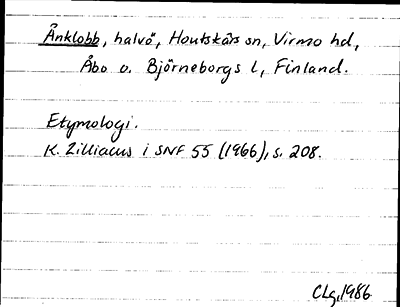 Ånklobb, halvö, Houtskärs sn, Virmo hd,
Åbo o. Björneborgs l, Finland.
Etymologi.
K. Zilliacus i SNF 55 (1966), s. 208.
CLg, 1986